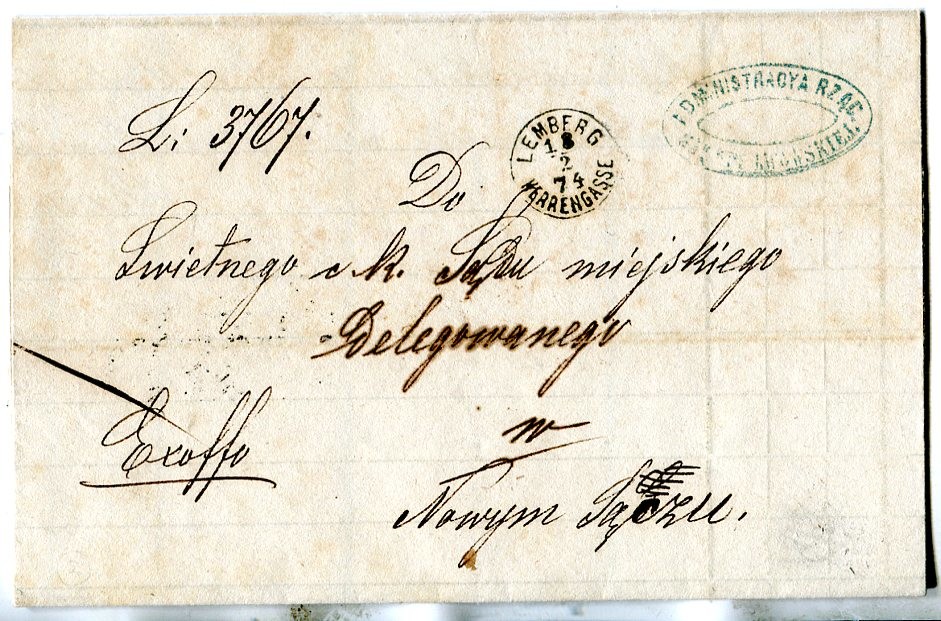 L: 3767.
LEMBERG
18
2
74
HERRENGASSE
ADMINISTRACYA RZĄD.
Do
Swietnego c k. Sądu miejskiego
Delegowanego
w
Exoffo
Nowym Sączu.